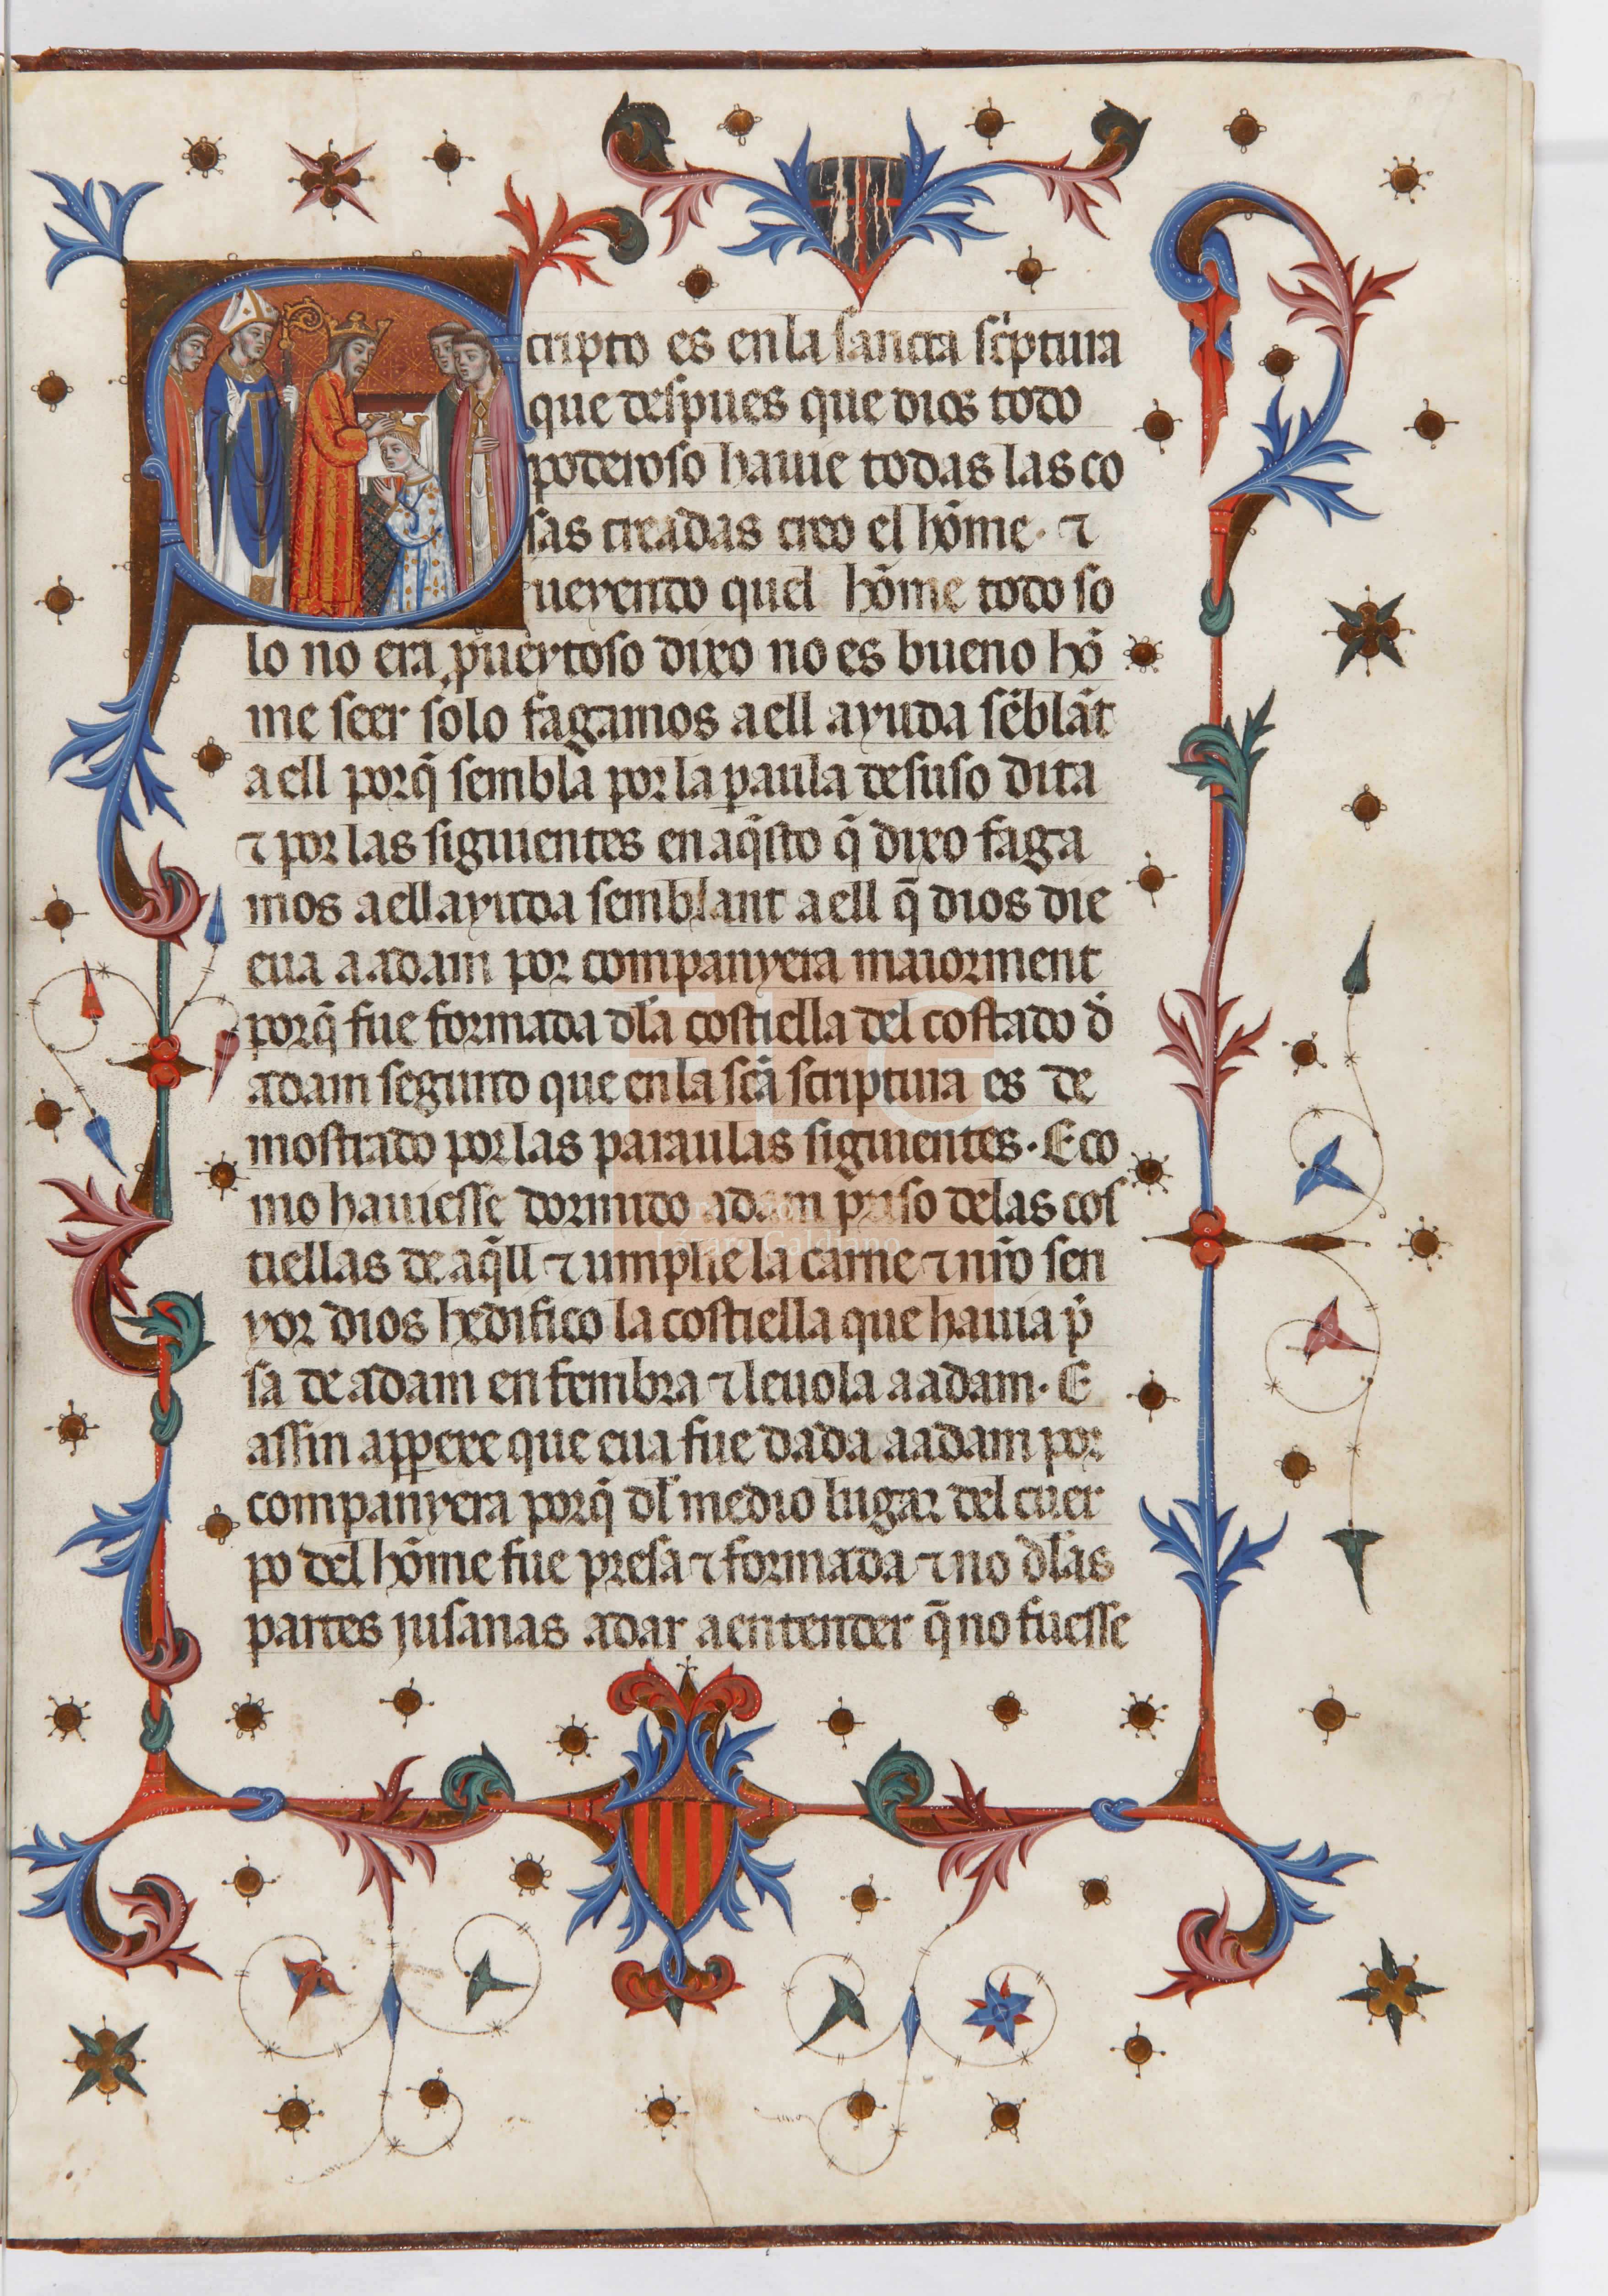 Scripto es en la sancta sc̃ptura
que despues que dios todo
poderoso hauie todas las co
sas creadas creo el hõme. ⁊
ueyendo quel hõme todo so
lo no era pueytoso dixo no es bueno hõ
me seer solo fagamos a ell ayuda sẽblãt
a ell porq̃ sembla por la ꝑaula desuso dita
⁊ por las siguientes en aq̃sto q̃ dixo faga
mos a ell ayuda semblant a ell q̃ dios die
eua a adam por companyera maiorment
porq̃ fue formada dl̃a costiella del costado d̃
adam segunto que en la sc̃a scriptura es de
mostrado por las paraulas siguientes. E co
mo hauiesse dormido adam priso delas cos
tiellas de aq̃ll ⁊ umplie la carne ⁊ nr̃o sen
yor dios hedifico la costiella que hauia p̃
sa de adam en fembra ⁊ leuola a adam. E
assin appere que eua fue dada a adam por
companyera porq̃ dl̃ medio lugar del cuer
po del hõme fue presa ⁊ formada ⁊ no dl̃as
partes jusanas a dar a entender q̃ no fuesse
FLG
Lázaro Galdiano